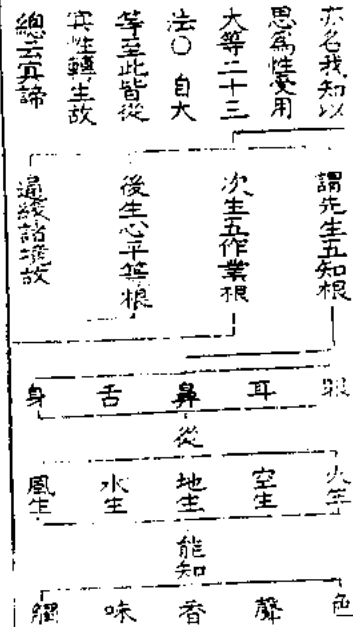 亦名我知以
思為性受用
大等二十三
法〇自大
等至此皆從
實性轉生故
總云真諦
謂先生五知根
次生五作業根
後生心平等根
遍緣諸境故
眼
耳
鼻
舌
身
從
火生
空生
地生
水生
風生
能知
色
聲
香
味
觸